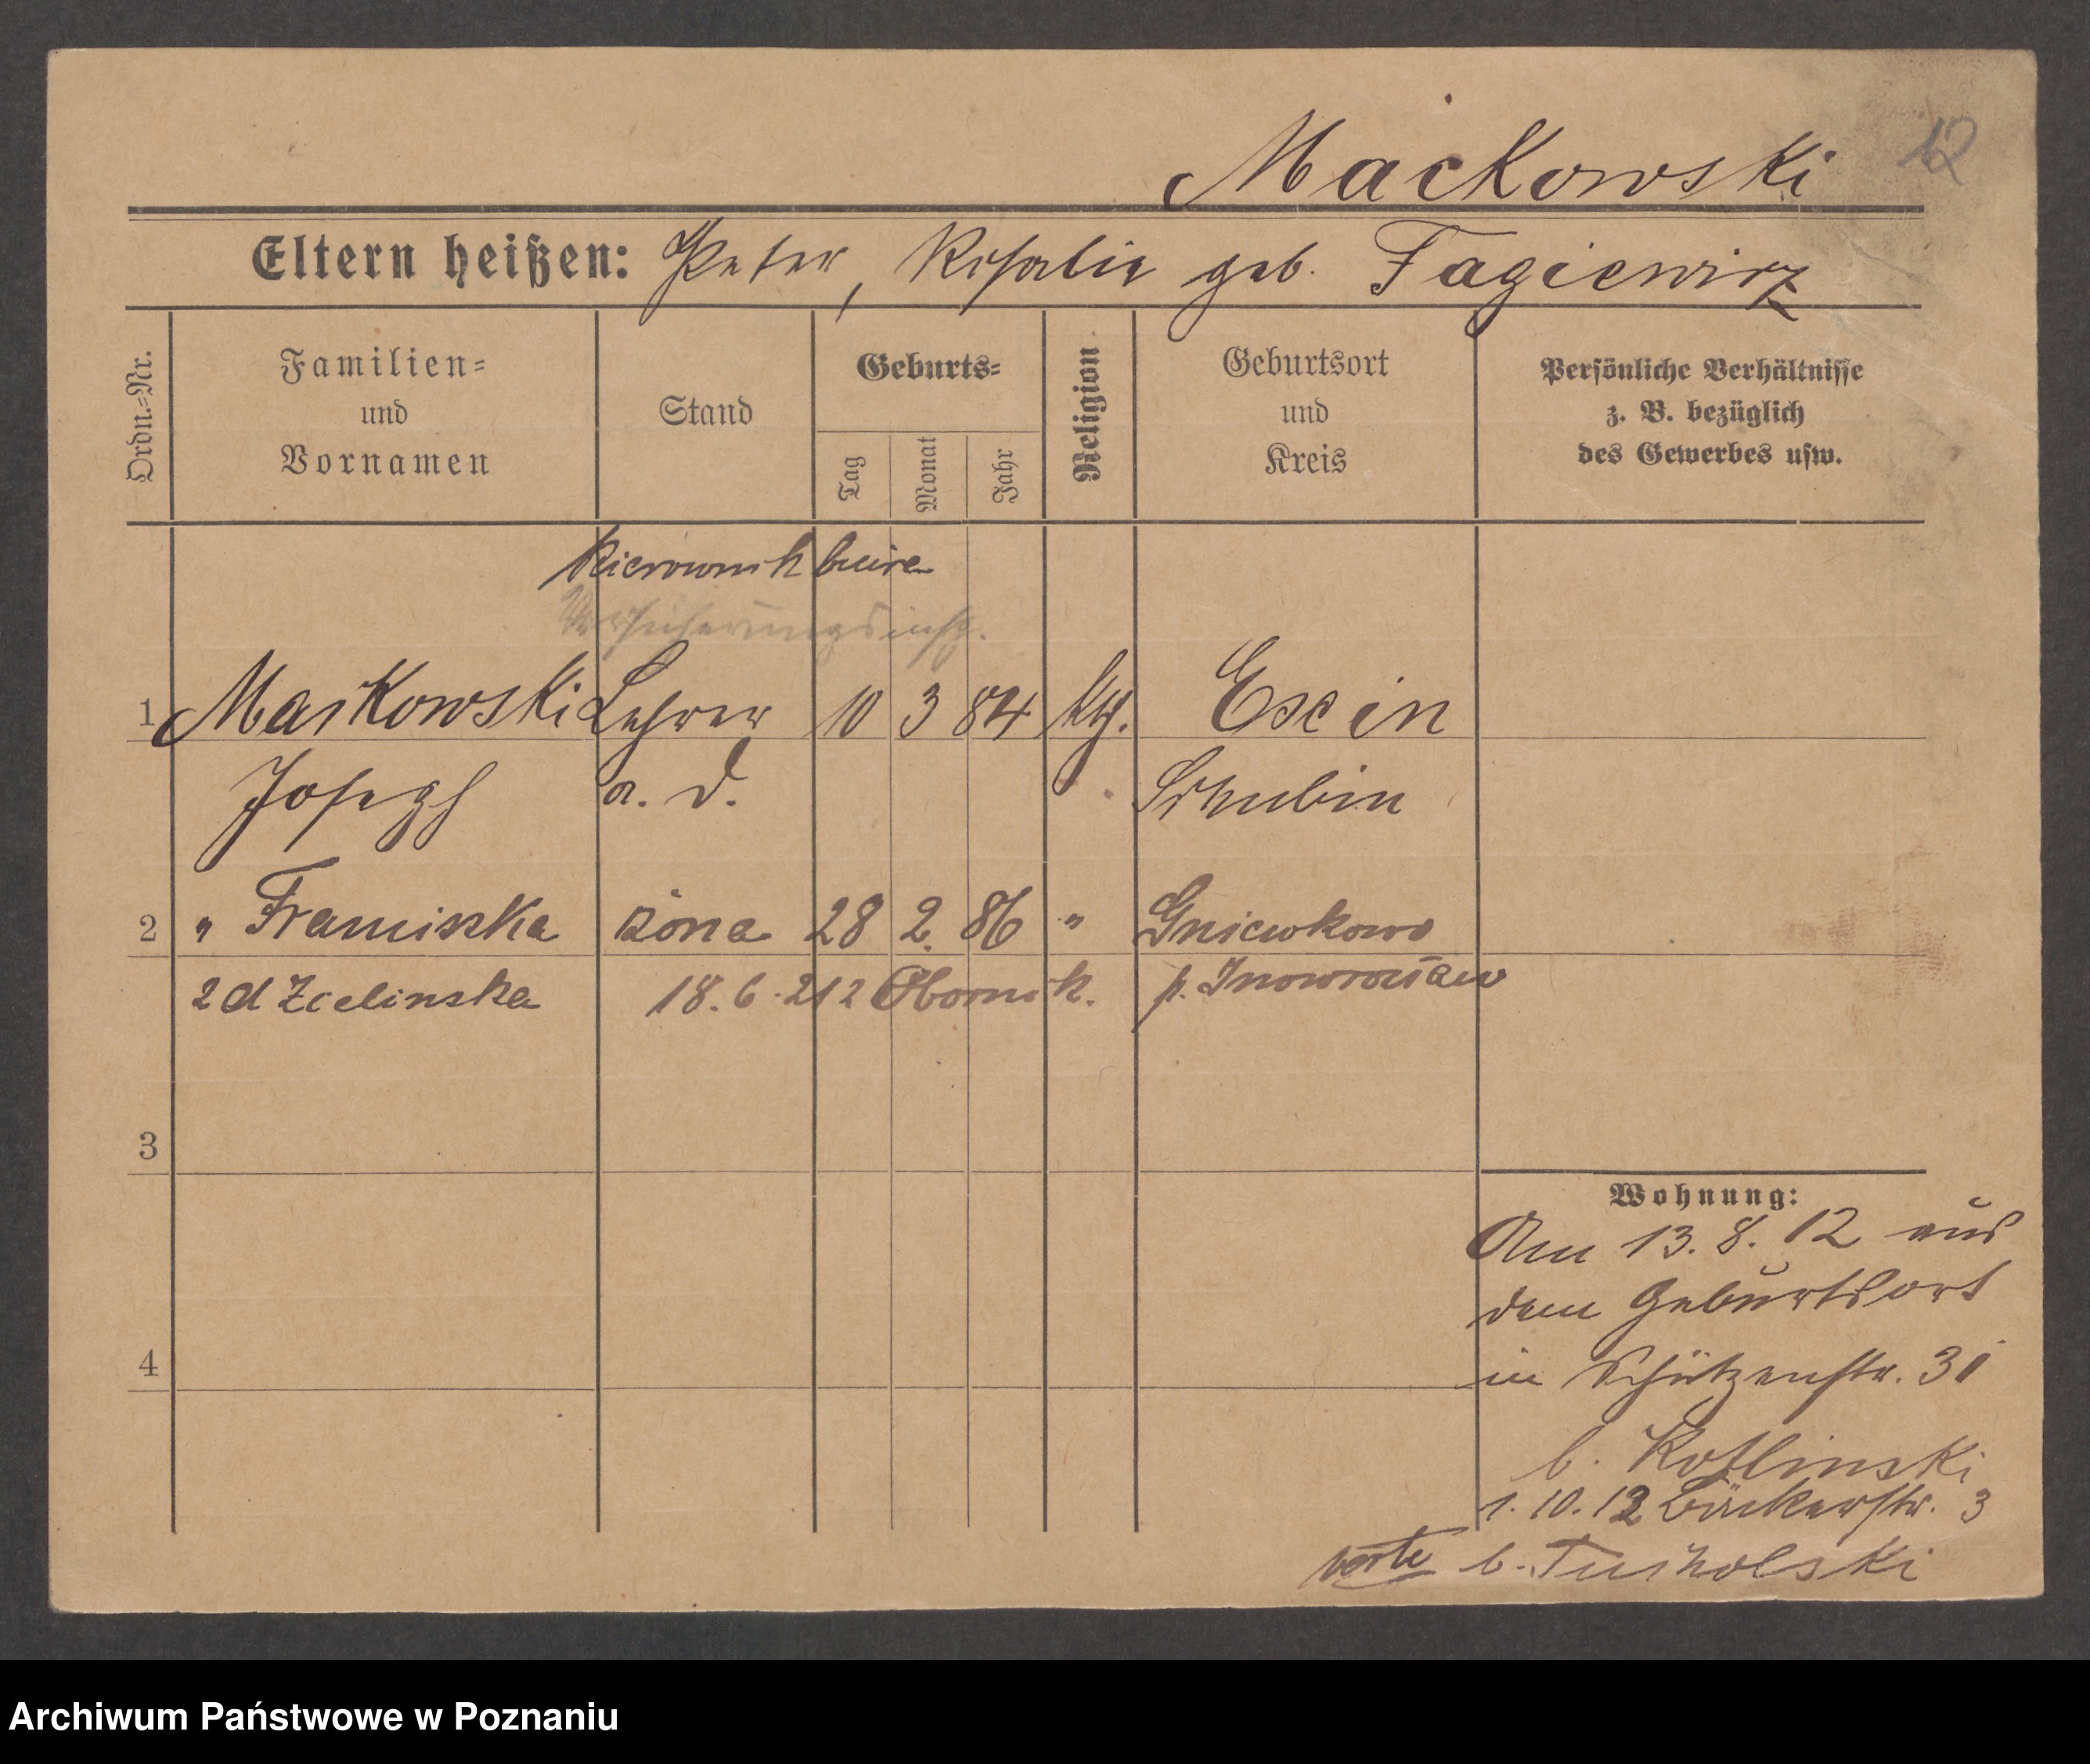 Mackowski 12
Eltern heißen: Peter, Rosalie geb. Fagiewicz
Ordn.-Nr.
Familien-
und
Vornamen
Stand
Geburts-
Tag
Monat
Jahr
Religion
Geburtsort
und
Kreis
Persönliche Verhältnisse
z. B. bezüglich
des Gewerbes usw.
Kierownik biura
Versicherungsinsp.
1 Mackowski Lehrer 10 3 84 kth. Excin
Joseph a. D. Schubin
2 " Franciszka żona 28 2. 86 " Gniewkowo
zd Zielinska 18. 6. 212 Obornik. p. Inowrocław
3
Wohnung:
Am 13. 8. 12 aus
dem Geburtsort
4
in Schützenstr. 31
b. Kotlinski
1. 10. 12 Bäckerstr. 3
verte b. Tucholski
Archiwum Państwowe w Poznaniu